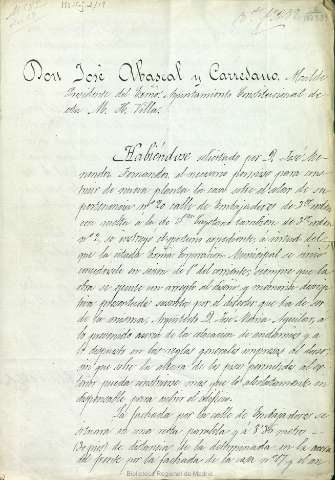 Don José Abascal y Carredano, Alcalde
Presidente del Excmo. Ayuntamiento Constitucional de
esta M. H. Villa.
Habiéndose solicitado por D. José Me-
nendez Fernandez, el necesario permiso para cons-
truir de nueva planta la casa sobre el solar de su
pertenencia nº 20 calle de Embajadores de 3er orden
con vuelta á la de Sn Cayetano tambien de 3er orden
nº 2, se instruyó el oportuno expediente, á virtud del
que la citada Excma. Corporacion Municipal se sirvió
concederle en sesion de 1º del corriente, siempre que la
obra se ejecute con arreglo al plano y memoria descrip-
tiva presentados suscritos por el director que ha de ser
de la misma, Arquitecto D. José Maria Aguilar, á
lo prevenido acerca de la colocacion de andamios y á
lo dispuesto en las reglas generales impresas al dorso
sin que sobre la altura de los pisos permitidos al ex-
terior pueda construirse mas que lo absolutamente in-
dispensable para cubrir el edificio.
La fachada por la calle de Embajadores se
situará en una recta paralela y á 8'36 metros
30 pies de distancia de la determinada en la acera
del frente por la fachada de la casa nº 17 y el an-
Biblioteca Regional de Madrid